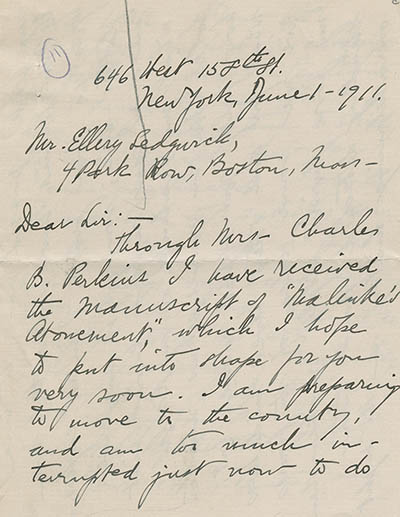 11
646 West 158th St.
New York, June 1-1911.
Mr. Ellery Sedgwick,
4 Park Row, Boston, Mass-
Dear Sir:-
Through Mrs- Charles
B. Perkins I have received
the manuscript of "Malinke's
Atonement", which I hope
to put into shape for you
very soon. I am preparing
to move to the country,
and am too much in-
terrupted just now to do